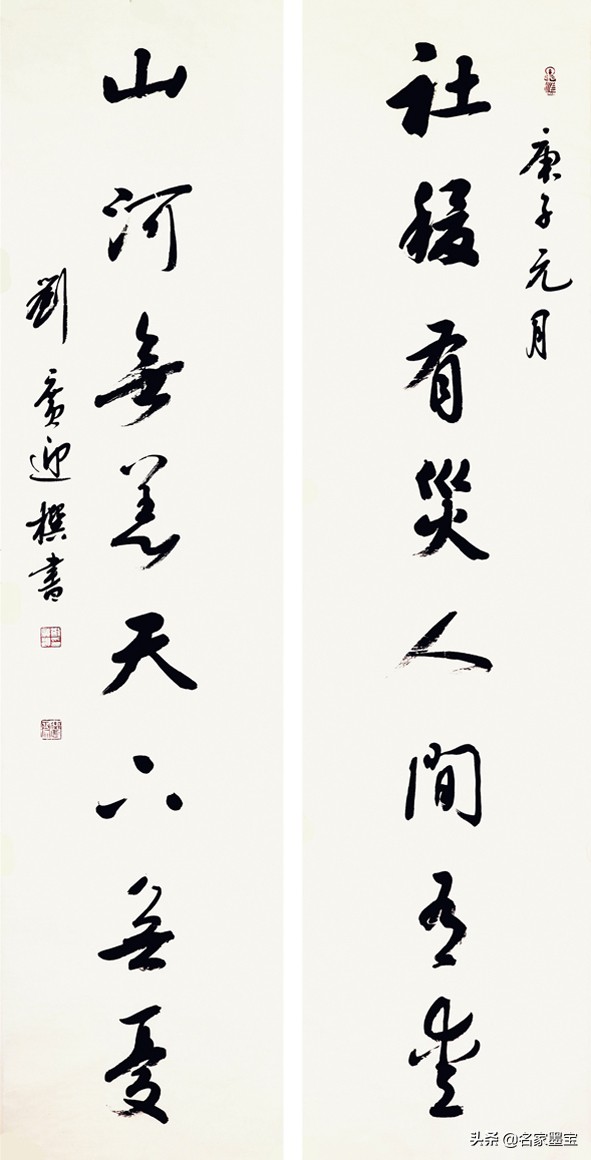 庚子元月
社稷有災人間有愛
山河無恙天下無憂
劉廣迎撰書
头条 @名家墨宝